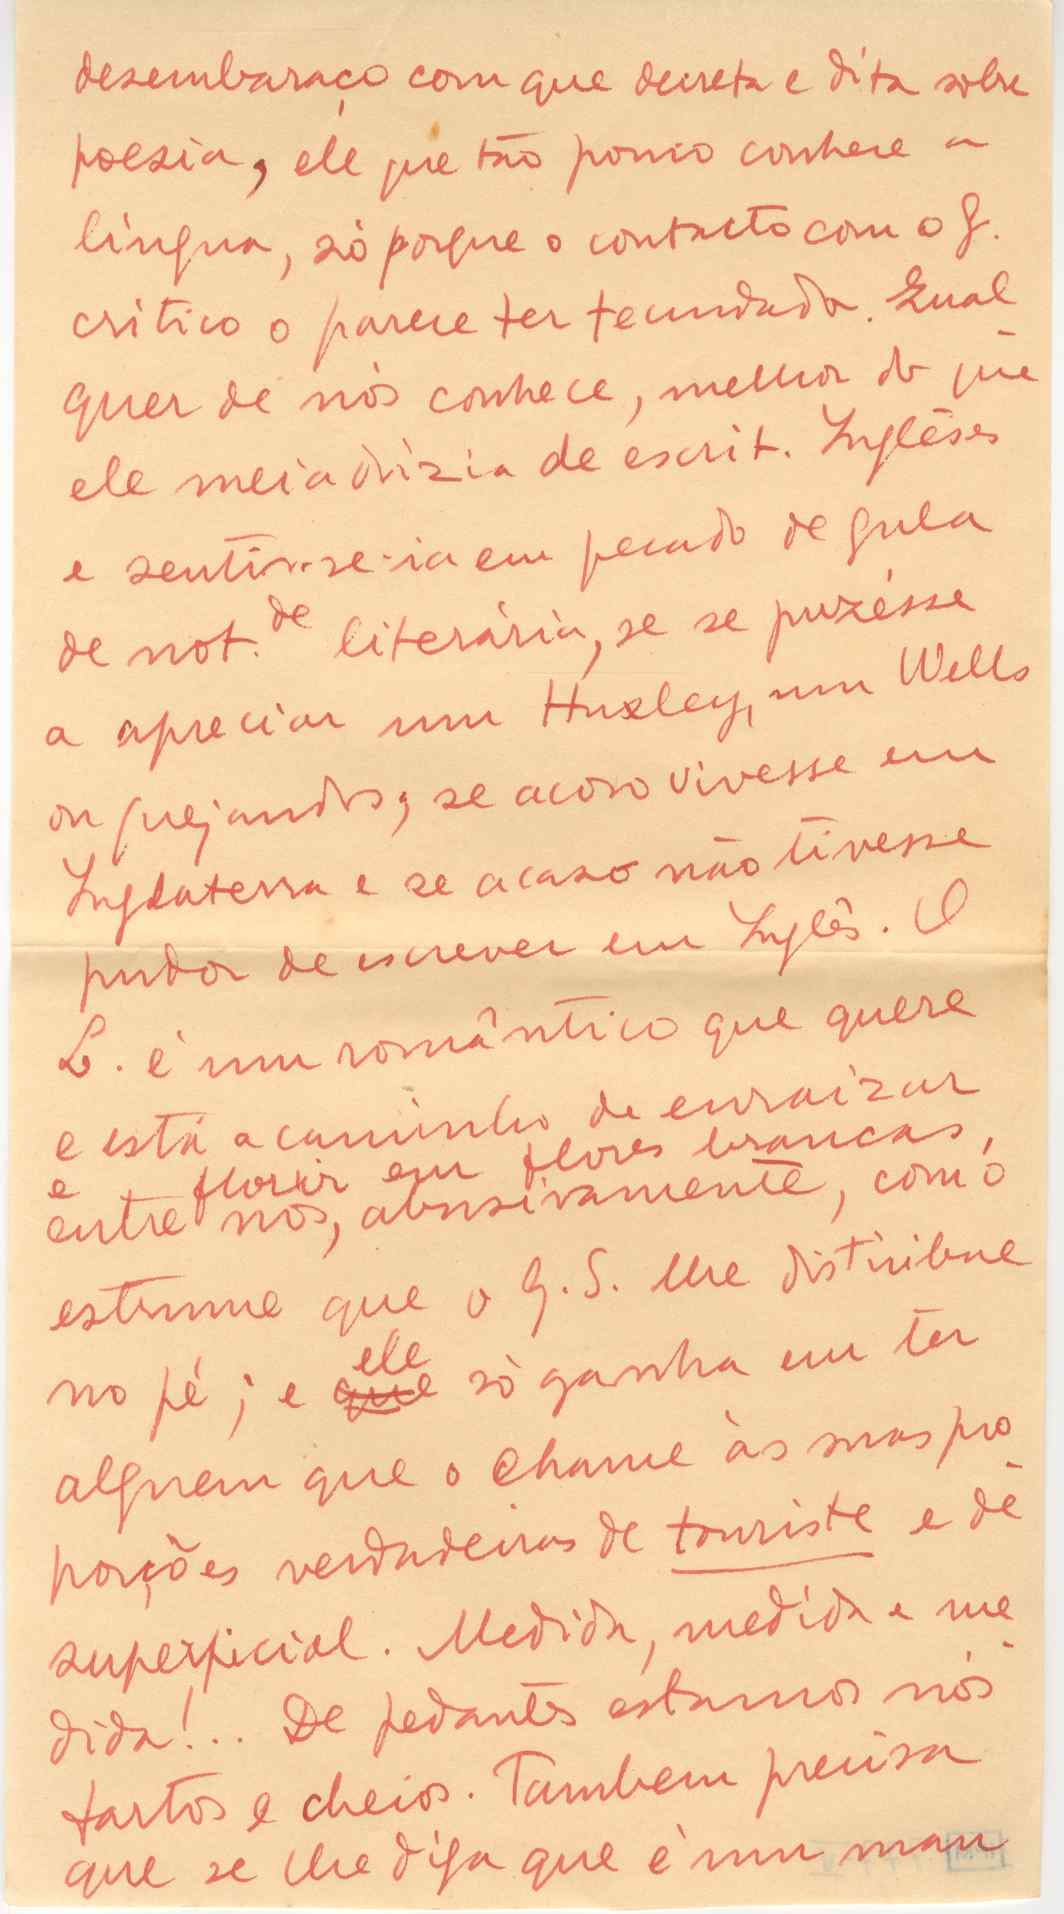 desembaraço com que decreta e dita sobre
poesia, ele que tão pouco conhece a
língua, só porque o contacto com o G.
critico o parece ter fecundado. Qual
quer de nós conhece, melhor do que
ele meia duzia de escrit. Inglêses
e sentir-se-ia em pecado de gula
de not.de literária, se se puzésse
a apreciar um Huxley, um Wells
ou quejandos, se acaso vivesse em
Inglaterra e se acaso não tivesse
pudor de escrever em Inglês. O
L. é um romântico que quere
e está a caminho de enraizar
e florir em flores brancas,
entre nós, abusivamente, com o
estrume que o G.S. lhe distribue
no pé; e ele
que só ganha em ter
alguem que o chame às suas pro
porções verdadeiras de touriste e de
superficial. Medida, medida e me
dida!... De pedantes estamos nós
fartos e cheios. Tambem precisa
que se lhe diga que é um mau